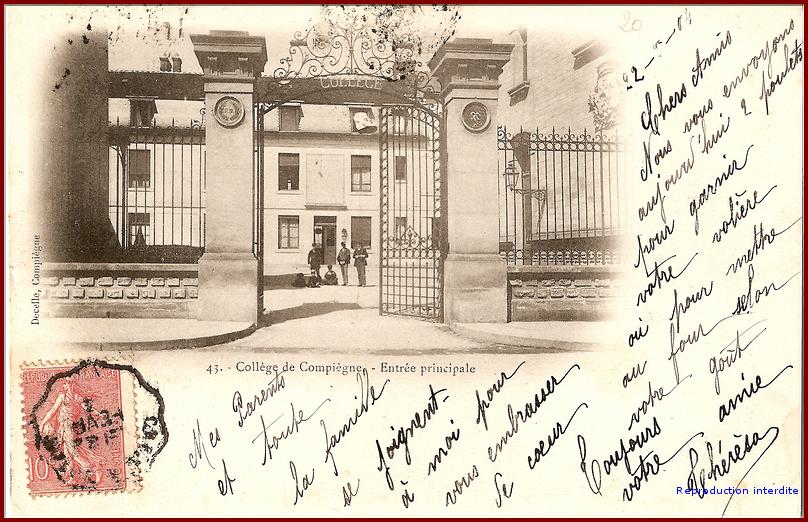 COLLÈGE
Decelle, Compiègne
43. - Collège de Compiègne - Entrée principale
RÉPUBLIQUE FRANÇAISE
10
20
Chers Amis
Nous vous envoyons
aujourd'hui 2 poulets
pour garnir
votre volière
où pour mettre
au four selon
votre goût
Toujours
votre amie
Thérèsa
Mes Parents
et toute
la famille
se joignent-
à moi pour
vous embrasser
de coeur
Reproduction interdite